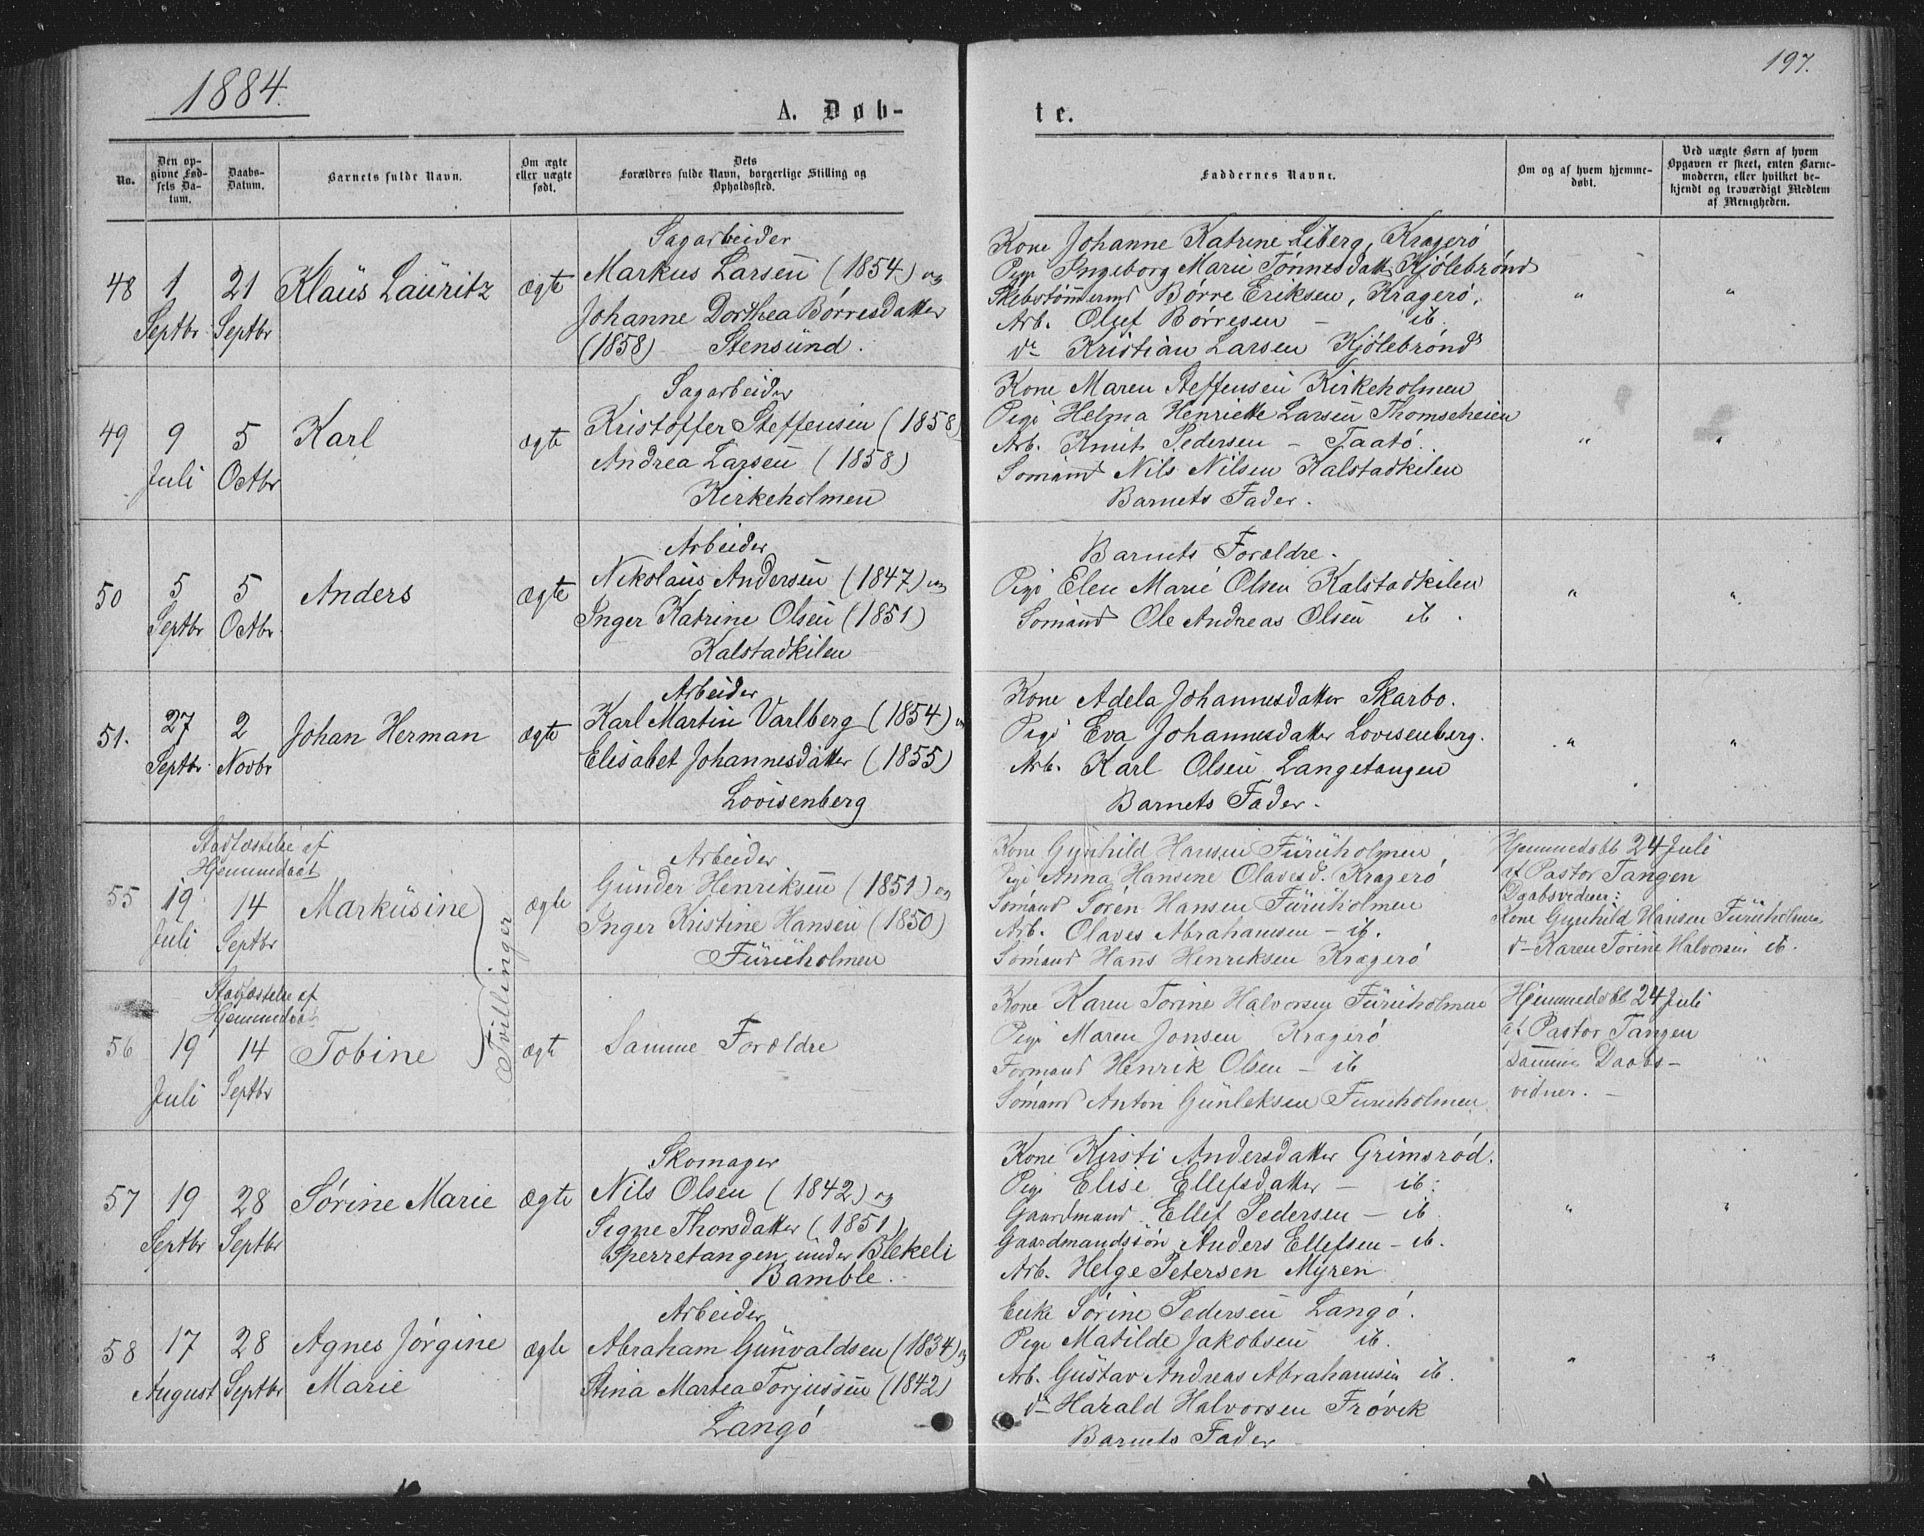 1884.
197.
A. Døb-
te.
No.
Den op-
givne Fød-
sels Da-
tum.
Daabs-
Datum.
Barnets fulde Navn.
Om ægte
eller uægte
født.
Dets
Forældres fulde Navn, borgerlige Stilling og
Opholdssted.
Faddernes Navne.
Om og af hvem hjemme-
døbt.
Ved uægte Børn af hvem
Opgaven er skeet, enten Barne-
moderen, eller hvilket be-
kjendt og troværdigt Medlem
af Menigheden.
48
1
Septbr
21
Septbr
Klaus Lauritz
ægte
Sagarbeider
Markus Larsen (1854) og
Johanne Dorthea Børresdatter
(1858) Stensund.
Kone Johanne Katrine Liberg, Kragerø
Pige Ingeborg Marie Tønnesdatt Kjølebrønd
Skibstømmermd Børre Eriksen, Kragerø,
Arb. Oluf Børresen - ib.
do Kristian Larsen Kjølebrønd
" "
49
9
Juli
5
Octbr
Karl
ægte
Sagarbeider
Kristoffer Steffensen (1858)
Andrea Larsen (1858)
Kirkeholmen
Kone Maren Steffensen Kirkeholmen
Pige Helma Henriette Larsen Thomseheien
Arb. Knut Pedersen - Taatø.
Sømand Nils Nilsen Kalstadkilen
Barnets Fader.
" "
50
5
Septbr
5
Octbr
Anders
ægte
Arbeider
Nikolaus Andersen (1847) og
Inger Katrine Olsen (1851)
Kalstadkilen
Barnets Forældre.
Pige Elen Marie Olsen Kalstadkilen
Sømand Ole Andreas Olsen ib.
" "
51.
27
Septbr
2
Novbr
Johan Herman
ægte
Arbeider
Karl Martin Varlberg (1854) og
Elisabet Johannesdatter (1855)
Lovisenberg
Kone Adela Johannesdatter Skarbo.
Pige Eva Johannesdatter Lovisenberg.
Arb. Karl Olsen Langetangen
Barnets Fader.
" "
55
Stadfæstelse af
Hjemmedaab
19
Juli
14
Septbr
Markusine
Tvillinger
ægte
Arbeider
Gunder Henriksen (1851) og
Inger Kristine Hansen (1850)
Furuholmen
Kone Gunhild Hansen Furuholmen
Pige Anna Hansine Olavesd. Kragerø
Sømand Søren Hansen Furuholmen
Arb. Olaves Abrahamsen - ib.
Sømand Hans Henriksen Kragerø
Hjemmedøbt 24 Juli
af Pastor Tangen
Daabsvidner:
Kone Gunhild Hansen Furuholmen
do Karen Torine Halvorsen ib.
56
Stadfæstelse af
Hjemmedaab
19
Juli
14
Septbr
Tobine
ægte
Samme Forældre
Kone Karen Torine Halvorsen Furuholmen
Pige Maren Jonsen Kragerø
Formand Henrik Olsen - ib
Sømand Anton Gunleksen Furuholmen
Hjemmedøbt 24 Juli
af Pastor Tangen
Samme Daabs-
vidner. -
"
57
19
Septbr
28
Septbr
Sørine Marie
ægte
Skomager
Nils Olsen (1842) og
Signe Thorsdatter (1851)
Sperretangen under Blekeli
Bamble.
Kone Kirsti Andersdatter Grimsrød.
Pige Elise Ellefsdatter - ib.
Gaardmand Ellef Pedersen - ib
Gaardmandssøn Anders Ellefsen - ib.
Arb. Helge Petersen Myren
" "
58
17
August
28
Septbr
Agnes Jørgine
Marie
ægte
Arbeider
Abraham Gunvaldsen (1834) og
Stina Martea Torjussen (1842)
Langø
Enke Sørine Pedersen Langø.
Pige Matilde Jakobsen ib.
Arb. Gustav Andreas Abrahamsen ib.
do Harald Halvorsen Frøvik
Barnets Fader
" "